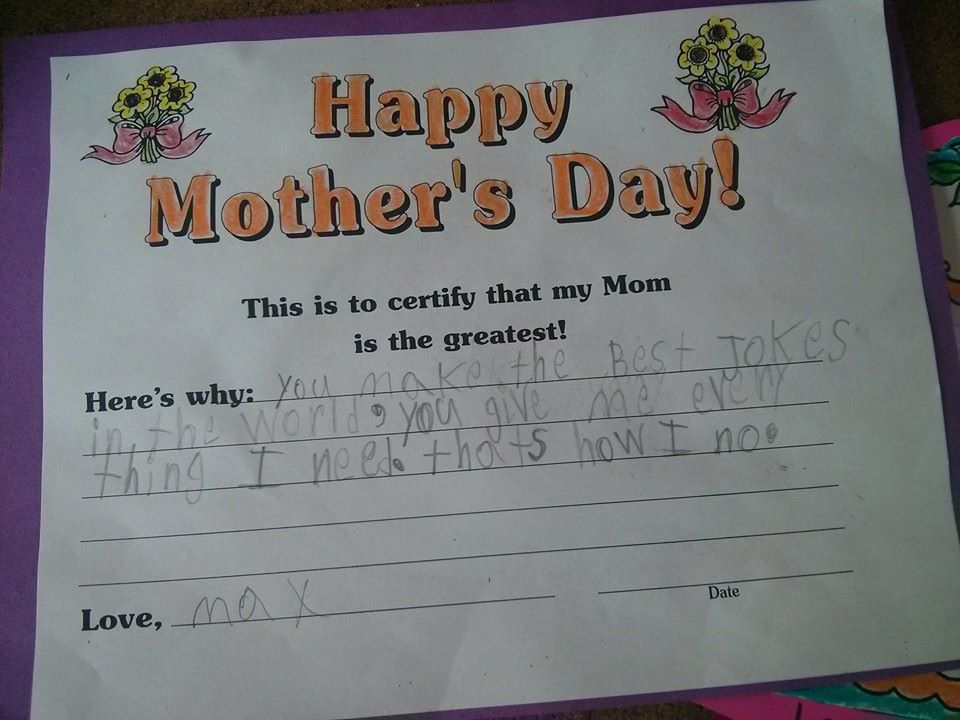 Happy
Mother's Day!
This is to certify that my Mom
is the greatest!
Here's why: you make the Best Jokes
in the world, you give me every
thing I need. thats how I no.
Love, max
Date